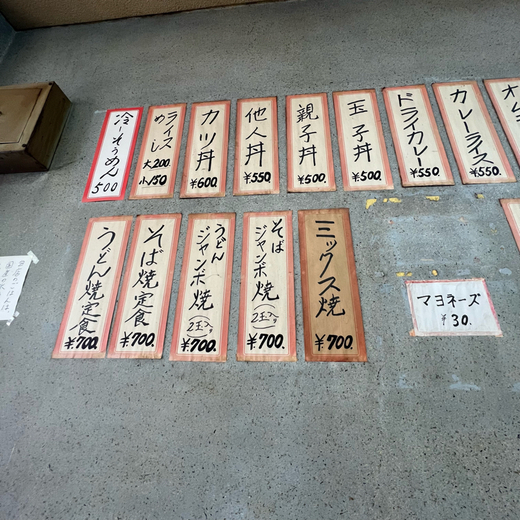 冷しそうめん
500
ライス
めし
大200
小150
カツ丼
¥600.
他人丼
¥550.
親子丼
¥500.
玉子丼
¥500.
ドライカレー
¥550.
カレーライス
¥550.
オム
うどん焼定食
¥700.
そば焼定食
¥700.
うどん
ジャンボ焼
(2玉入り)
¥700.
そば
ジャンボ焼
(2玉入り)
¥700.
ミックス焼
¥700.
マヨネーズ
¥30.